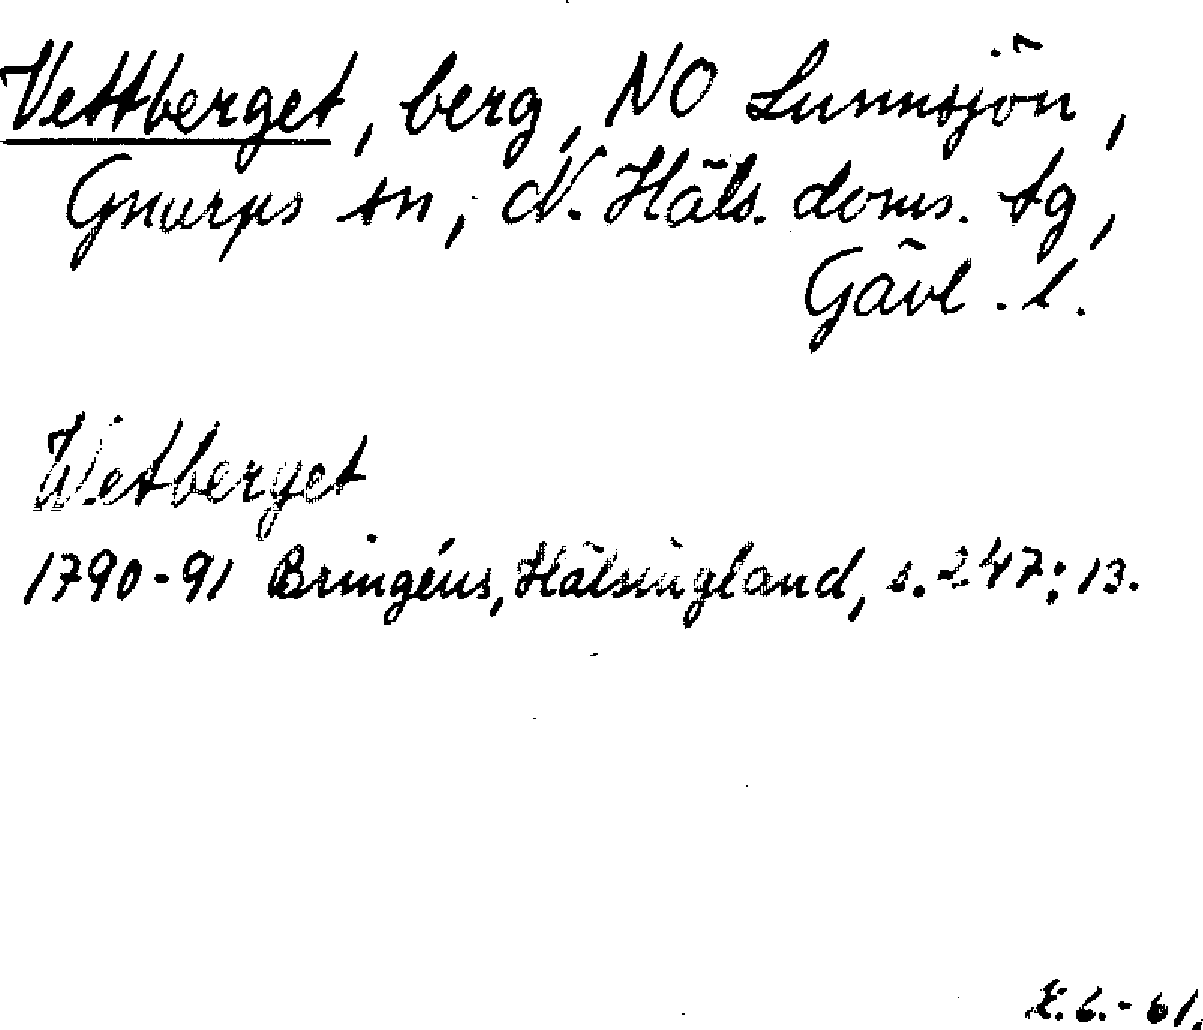 Vettberget, berg, NO Lunnsjön,
Gnarps sn, N. Häls. doms. tg,
Gävl. l.
Wetberget
1790-91 Bringéus, Hälsingland, s. 247:13.
K.G.-61.